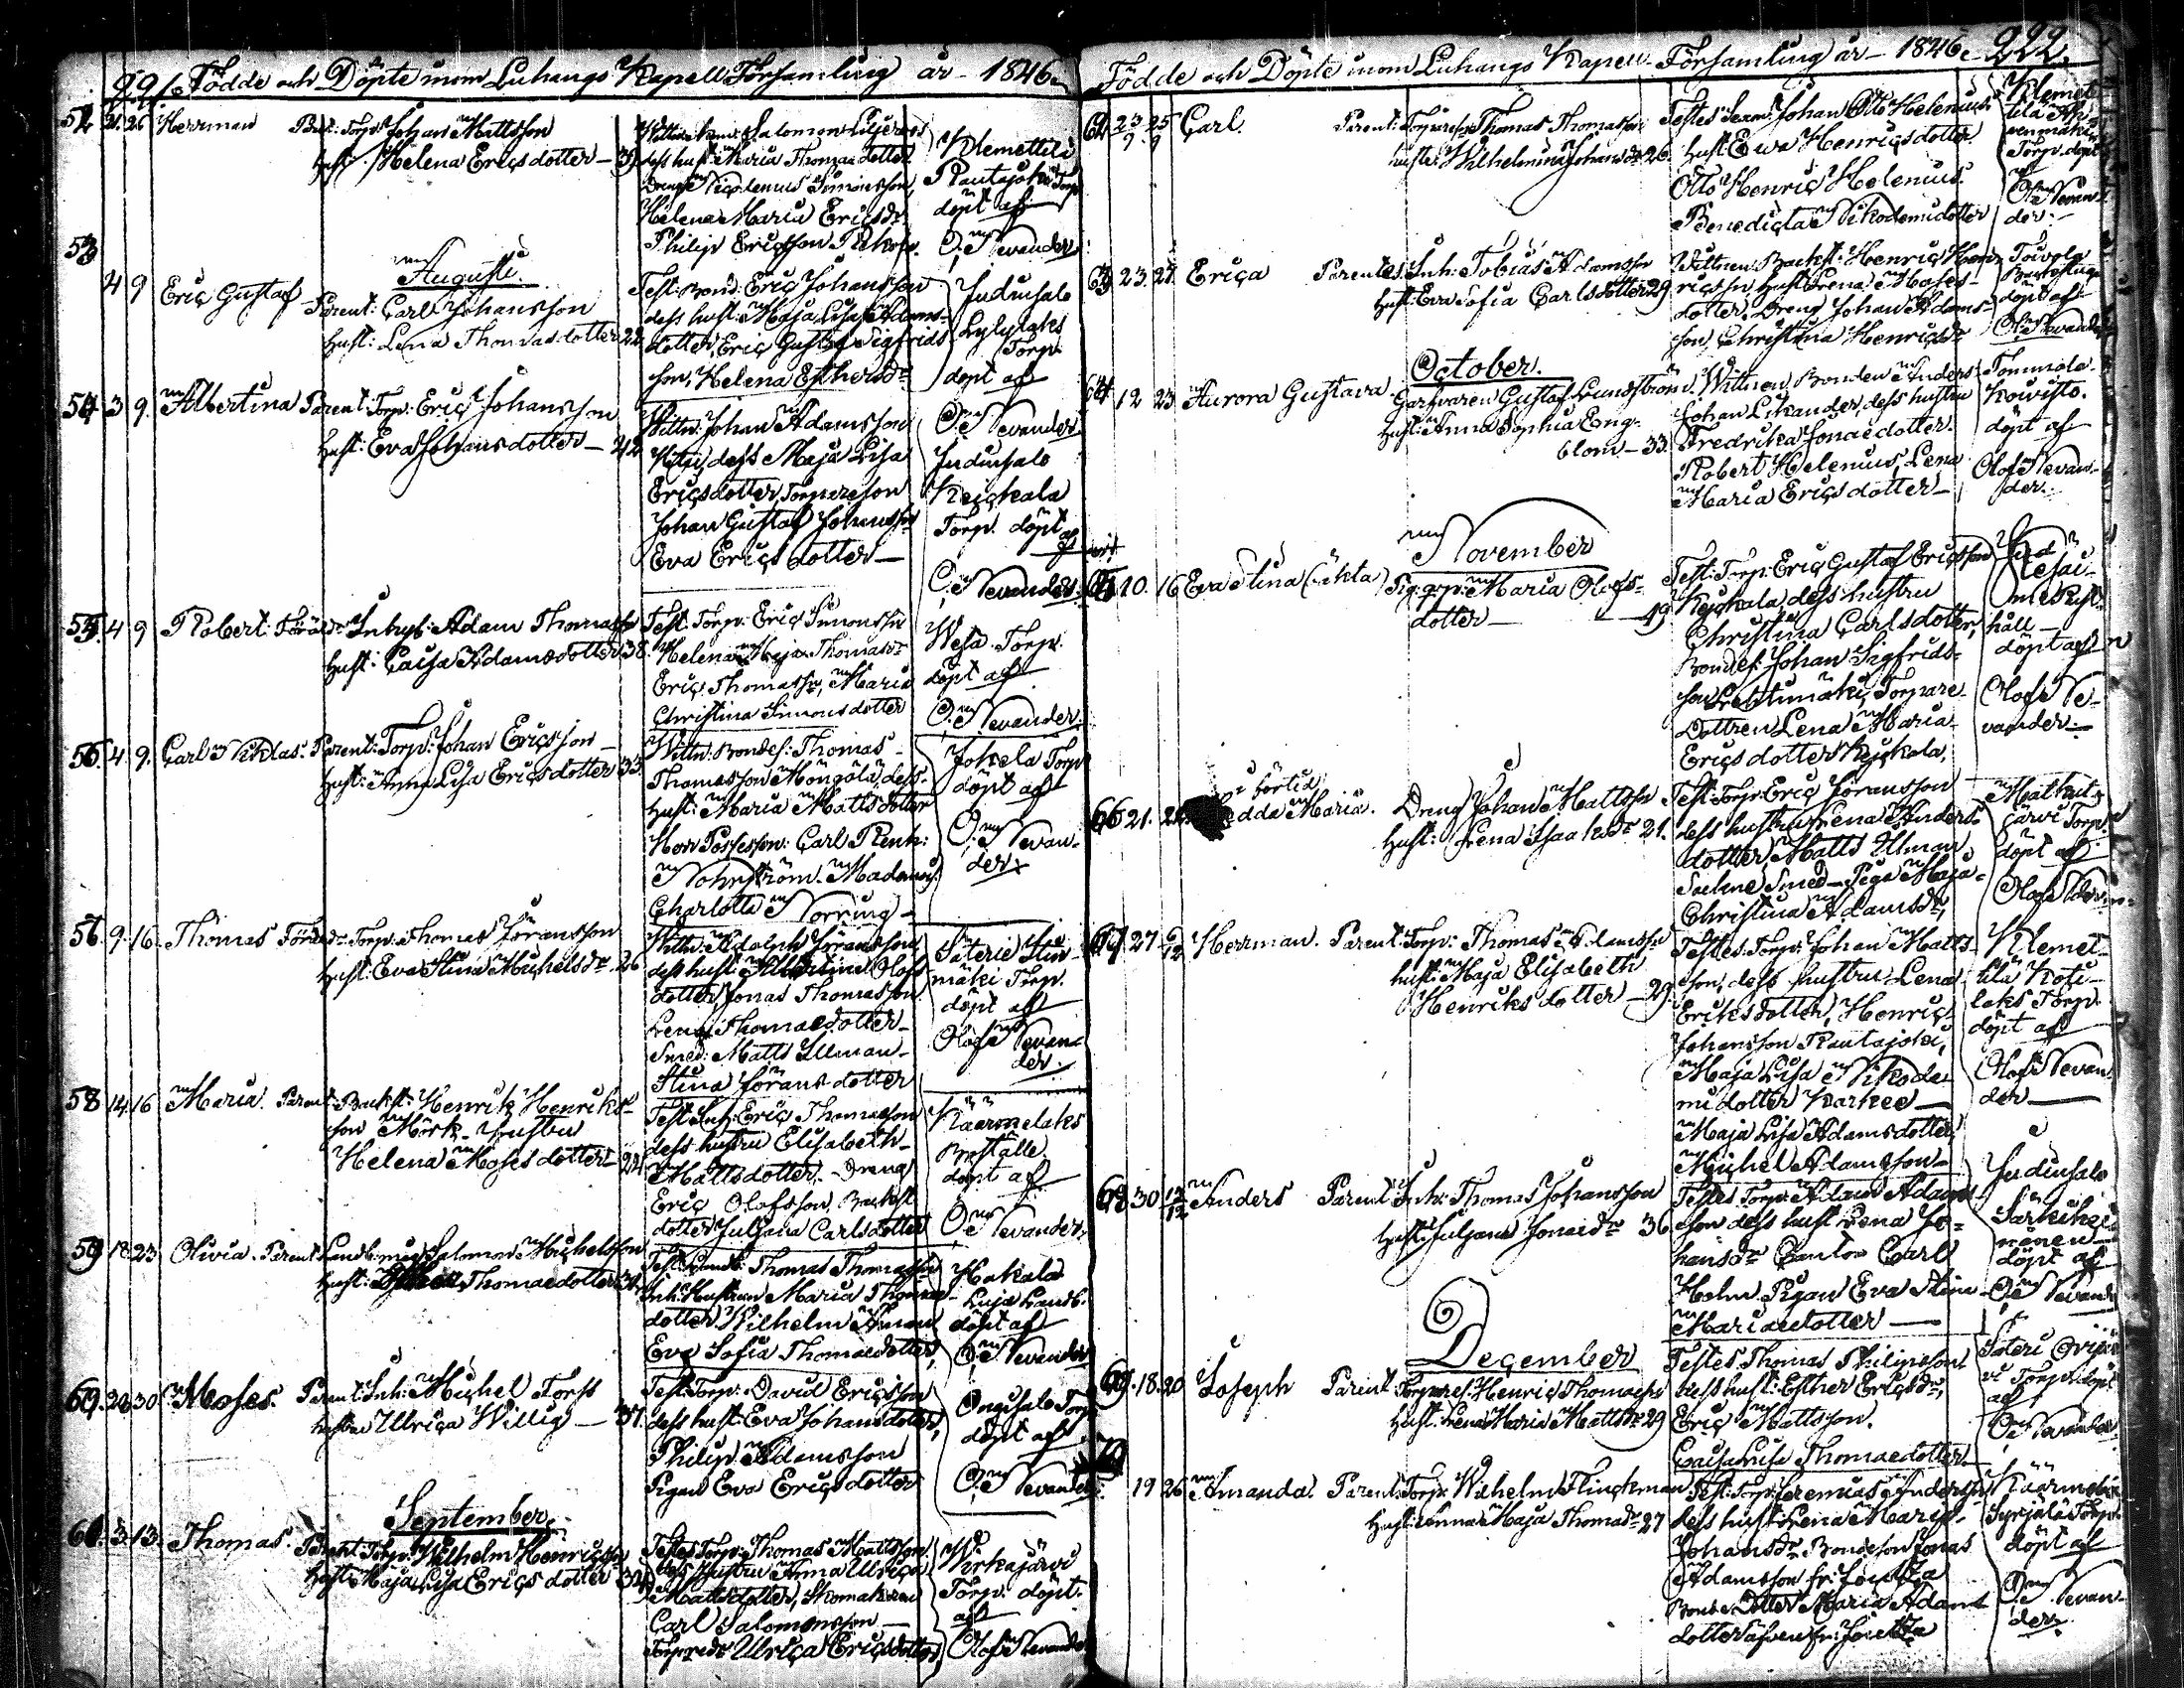 221. Födde och Döpte inom Luhangs Kapell Församling år 1846.
52 21. 26 Herrman Par: Torp: Johan Mattsson
hust: Helena Ericsdotter - 39
Salomon
dess hust: Maria Thomaedotter
Dreng Nicodemus Simonsson,
Helena Maria Ericsdr
Philip Ericsson
Klemettilä
Rautajoki Torp
döpt af
O: Nevander
53
Augusti.
4 9 Eric Gustaf Parent: Carl Johansson
hust: Lena Thomasdotter 22
Test: Bond: Eric Johansson
dess hust: Maja Lisa Adams-
dotter, Eric Gustaf Sigfrids
son, Helena Esthersdr
Judinsalo
Lylylaks
Torp.
döpt af
O: Nevander
54 3 9. Albertina Parent: Torp: Eric Johansson
hust: Eva Johansdotter - 42
Wittn: Johan Adamsson
dess Maja Lisa
Ericsdotter, Torpareson
Johan Gustaf Johansson
Eva Ericsdotter -
Judinsalo
Keickala
Torp. döpt af
O: Nevander.
55. 4 9 Robert. Föräldr Inhys: Adam Thomasson
hust: Caisa Adamsdotter 38.
Test. Torp: Eric Simonsson
Helena Maja Thomaedr
Eric Thomasson, Maria
Christina Simonsdotter
Torp.
döpt af
O: Nevander.
56. 4. 9. Carl Niklas. Parent: Torp: Johan Ericsson -
hust: Anna Lisa Ericsdotter 33.
Wittn: Bondes: Thomas
Thomasson dess
hust: Maria Mattsdotter
Herr Possession: Carl Renh:
Nohrström. Madamois:
Charlotta Norring -
Jokela Torp
döpt af
O: Nevan-
der.
56. 9. 16. Thomas Föräldr Torp: Thomas Göransson
hust: Eva Stina Michelsdr 26
Wittn: Adolph Göransson
dess hust: Albertina Olofs
dotter, Jonas Thomasson
Lena Thomaedotter -
Smed: Matts Ulman -
Stina Göransdotter
Säterie
mäki Torp.
döpt af
Olof Nevan-
der.
58 14. 16 Maria. Parent: Backst: Henrik Henriks-
son Mörk - hustru
Helena Mosesdotter - 22
Test. Inh: Eric Thomasson
dess hustru Elisabeth
Mattsdotter. - Dreng
Eric Olofsson, Backst
dotter Juljana Carlsdotter
Käärmelaks
Boställe.
döpt af
O: Nevander.
59 18. 23. Olivia. Parent: Landb: Salomon Michelsson
hust: Thomaedotter 34.
Test: Landb: Thomas Thomasson
Inh: Hustrun Maria Thomae-
dotter, Wilhelm
Eva Sofia Thomaedotter,
Hakala
Landb.
döpt af
O: Nevander
60. 28. 30 Moses. Parent: Inh: Michel Forss
hustru Ulrica Willig - 37.
Test: Torp: David Ericsson
dess hust: Eva Johansdotter,
Philip Adamsson
Pigan Eva Ericsdotter
Onkisalo Torp
döpt af
O: Nevander
September.
61. 3. 13. Thomas. Parent: Torp: Wilhelm Henricsson
hust: Maja Lisa Ericsdotter 34
Testes Torp: Thomas Mattsson
dess hustru Anna Ulrica
Mattsdotter, Skomakaren
Carl Salomonsson -
Ulrica Ericsdotter,
Wirkajärvi
Torp: döpt.
af
Olof Nevander
Födde och Döpte inom Luhangs Kapell Församling år 1846. 222.
62 23/9 25/9 Carl. Parent: Torparesn Thomas Thomasson
hustr: Wilhelmina Johansdr 26.
Testes Johan Otto Helenius
hust: Ewa Henricsdotter.
Otto Henric Helenius.
Benedicta Nikodemidotter
Klemet
tilä
Torp. döpt
O: Nevan
der. -
63 23. 27. Erica Parentes. Inh: Tobias Adamsson
hust: Eva Sofia Carlsdotter 29.
Wittnen: Backst: Henric Hen-
ricsson hust: Lena Moses-
dotter, Dreng Johan Adams-
son, Christina Henricsdr
Toivola
döpt af
Olof Nevander
October.
64 12 23 Aurora Gustava Garfvaren Gustaf Lundström.
hust: Anna Sophia Eng-
blom - 33.
Wittnen, Bonden Anders
Johan Likander, dess hustru
Fredrika Jonaedotter.
Robert Helenius, Lena
Maria Ericsdotter -
Tommola
Kowisto.
döpt af
Olof Nevan-
der.
November
65 10. 16 Eva Stina (oäkta) Pig: Maria Olofs-
dotter - 19
Test: Torp: Eric Gustaf Ericsson
Keickala, dess hustru
Christina Carlsdotter,
Bondes: Johan Sigfrids-
son Lehtimäki, Torpare-
Dottren Lena Maria
Ericsdotter Keickala,
håll -
döpt af
Olof Ne-
vander. -
66 21. Edda Maria. Dreng Johan Mattsson
hust: Lena Isaaksdr 21.
Test: Torp: Eric Göransson
dess hustru Lena Anders
dotter, Matts Ulman
Smed - Piga Maja
Christina Adamsdr,
järvi Torp.
döpt af
Olof Nevan-
67. 27. 6/12 Herrman. Parent: Torp: Thomas Adamsson
hust: Maja Elisabeth
Henriksdotter - 29.
Testes. Torp: Johan Matts-
son, dess hustru Lena
Eriksdotter, Henric
Johansson Rautajoki,
Maja Lisa Nikode-
midotter Karkee -
Maja Lisa Adamsdotter,
Michel Adamsson -
Klemet-
tilä Koti-
laks Torp.
döpt af
Olof Nevan-
der -
68 30 13/12 Anders Parent: Inh: Thomas Johansson
hust: Juljana Jonaedr 36
Testes Torp: Adam Adams-
son dess hust: Lena Jo-
hansdr Cantor Carl
Holm. Pigan Eva Stina
Mariaedotter -
Judinsalo
döpt af
O: Nevander
December
69. 18. 20 Joseph Parent: Torpares: Henric Thomasson
hust: Lena Maria Mattsdr 29
Testes. Thomas Philipsson
dess hust: Esther Ericsdr,
Eric Mattsson.
Caisa Lisa Thomaedotter
Säteri
Torp. döpt
af
O: Nevander.
70
19 26 Amanda. Parent: Torp: Wilhelm Flinckman
hust: Anna Maja Thomaedr 27
Test: Torp: Jeremias Andersson
dess hust: Lena Maria
Johansdr. Bondeson Jonas
Adamsson fr: Joutza
Bonde Dotter Maria Adams
dotter äfven fr: Joutza
Syrjälä Torp.
döpt af
O: Nevan-
der.